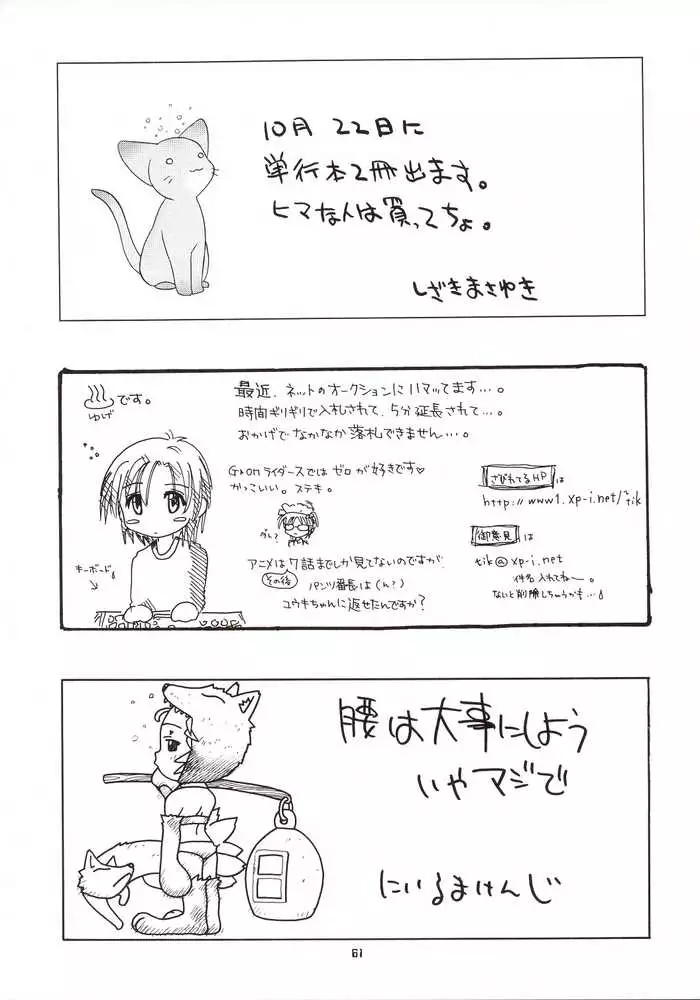 10月 22日に
単行本2冊出ます。
ヒマな人は買ってちょ。
しざきまさゆき
♨です。
ゆげ
最近、ネットのオークションにハマッてます…。
時間ギリギリで入札されて、5分延長されて…。
おかげでなかなか落札できません…。
G-onライダースではゼロが好きです♡
かっこいい。ステキ。
キーボード
アニメは7話までしか見てないのですが、
その後 パンツ番長は(ん?)
ユウキちゃんに返せたんですか?
さびれてるHP は
http://www1.xp-i.net/~tik
御意見 は
tik@xp-i.net
件名入れてねー。
ないと削除しちゃうかも…
腰は大事にしよう
いやマジで
にいるまけんじ
61